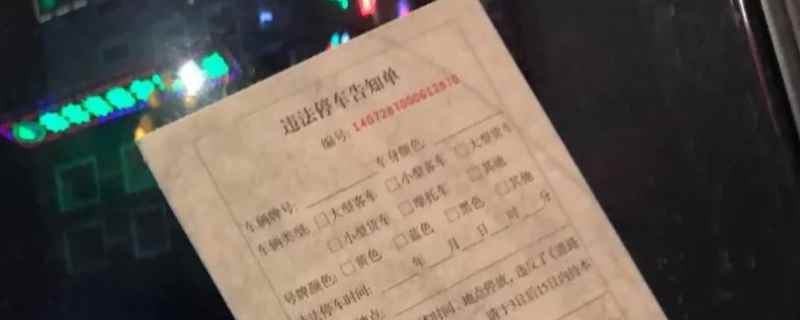 违法停车告知单
编号:1407287000012870
车辆牌号: 车身颜色:
车辆类型: □大型客车 □小型客车 □大型货车
□小型货车 □摩托车 □其他
号牌颜色: □黄色 □蓝色 □黑色 □其他
法停车时间: 年 月 日 时 分
地点
时间、地点停放,违反了《道路
请于3日后15日内持本